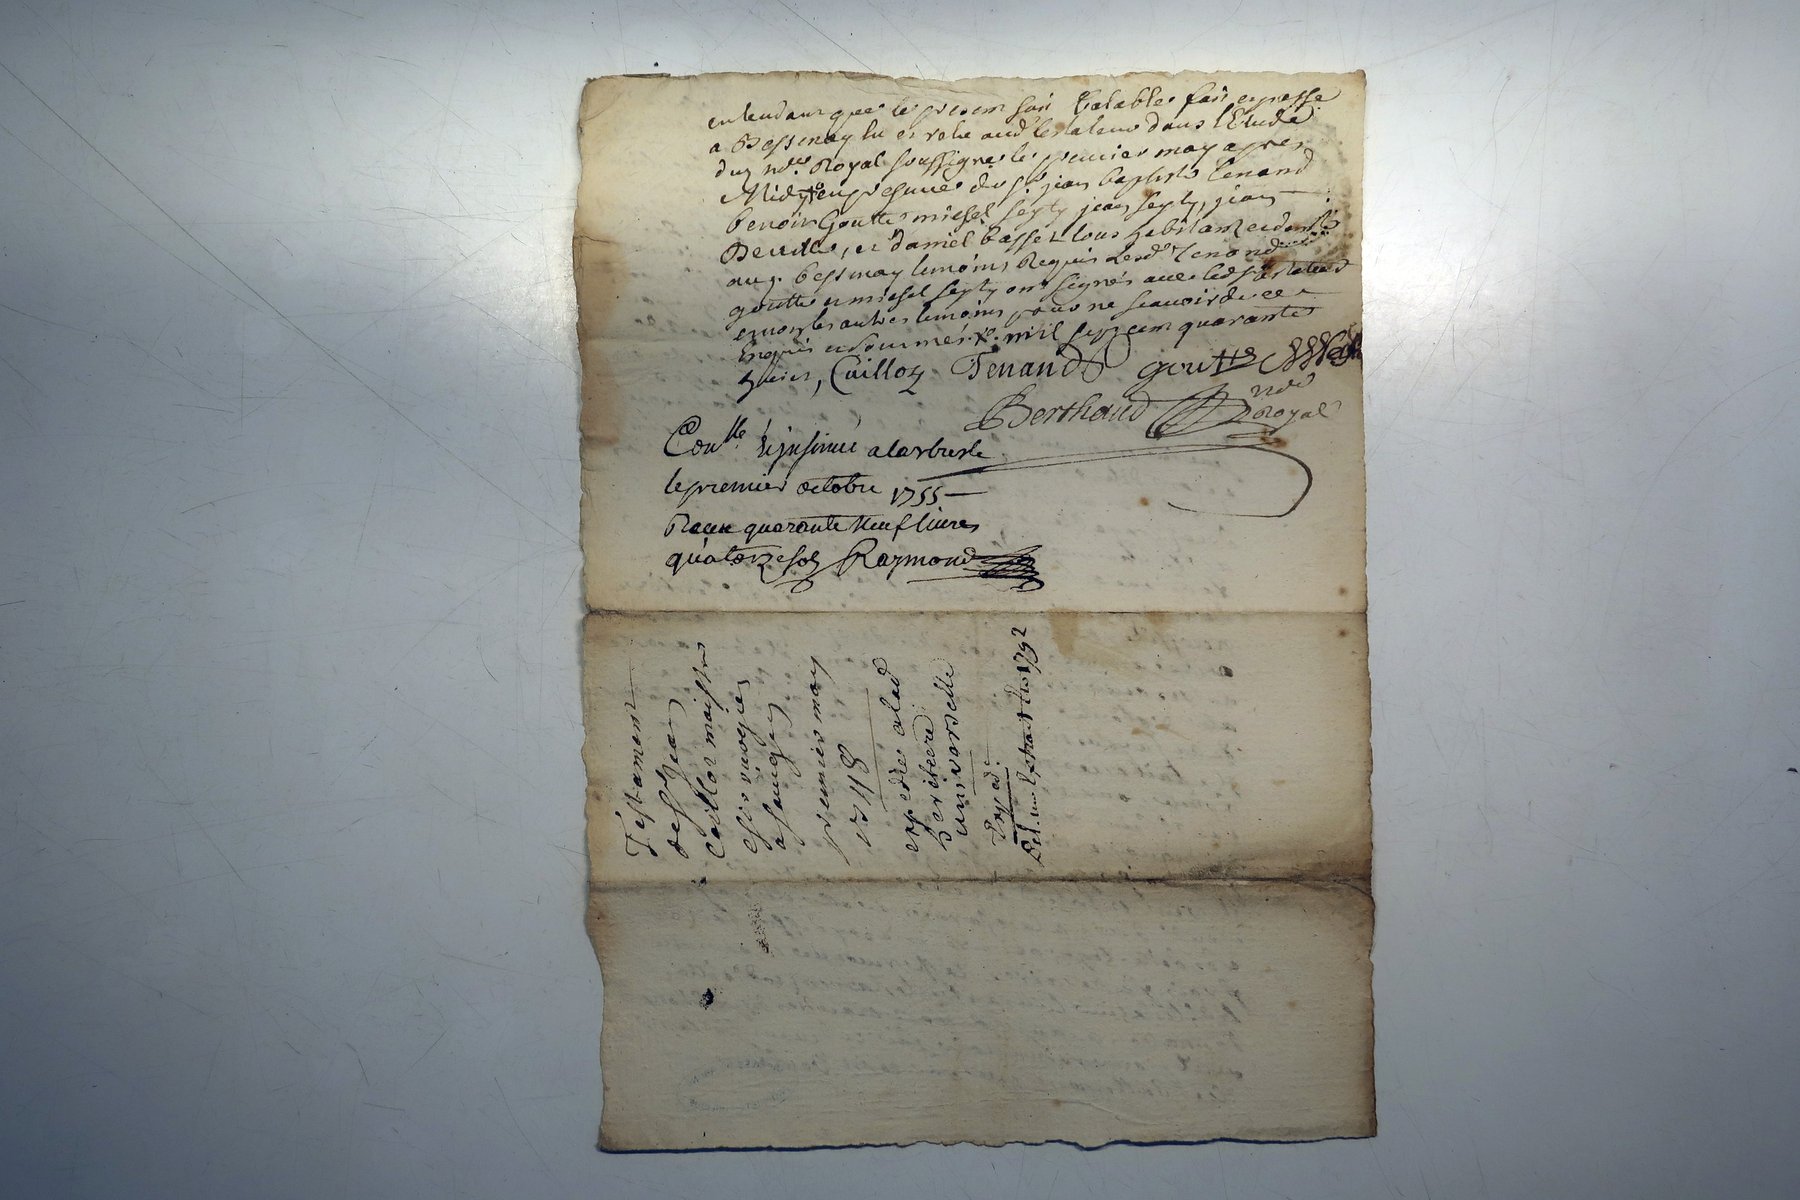 entendant que le present soit valable fait et passé
a Bessenay lu et relu audt testateur dans l'Etude
du nre. Royal soussigné le premier may apres
Midy en presence de sr jean baptiste Tenand
benoit Goutte michel jean jean
et daniel basset tous habitants
de Bessenay temoins Requis Lesds Tenand
goutte et michel ont signés avec led testateur
et non les autres temoins pour ne scavoir de ce
Enquis et sommés mil sept cent quarante
huict, Caillot Tenand goutte
Berthaud nre Royal
Conllé insinué a larbresle
le premier octobre 1755
Reçu quarante neuf livres
quatorze sols Raymond
Testament
de sr Jean
Caillot maistre
chirurgien
a
premier may
1748
expedié a lad
heritiere
universelle
Exped.
Del. un Extrait 1792